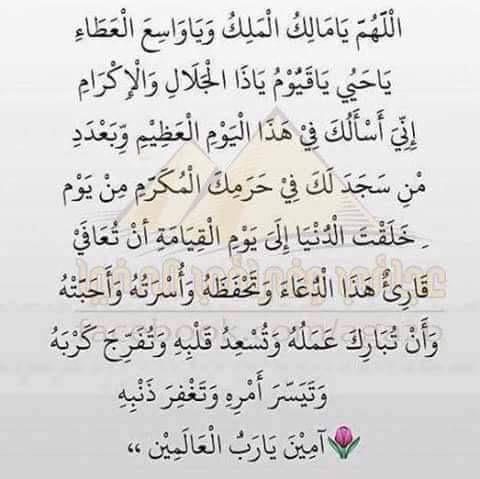 اللّهُمّ يَامَالِكُ الْمَلِكُ وَيَاوَاسِعَ الْعَطَاءِ
يَاحَيُي يَاقَيُوْمُ يَاذَا الْجَلَالِ وَالْإِكْرَامِ
إِنِّيَ أَسْأَلُكَ فِيْ هَذَا الْيَوْمِ الْعَظِيْمِ وِّبَعْدَدِ
مْنِ سَجَدَ لَكَ فِيْ حَرَمِكَ الْمُكَرّمِ مِنْ يَوْم
ِ خَلَقْتَ الْدُنْيَا إِلَىَ يَوْمِ الْقِيَامَةِ أنْ تُعَافَيْ
قَارِئُ هَذَا الْدُعَاءَ وَتَحْفَظَهُ وَأُسْرَتُهُ وَأَحِبَتْهُ
وَأَنْ تُبَارِكَ عَمَلُهُ وَتُسْعِدُ قَلْبِهِ وَتُفَرِّجَ كَرْبَهُ
وَتَيَسّرَ أَمْرِهِ وَتَغْفِرَ ذَنْبِهِ
🌷آمِيْنَ يَارَبُ الْعَالَمِيْنَ ،،
facebook.com/